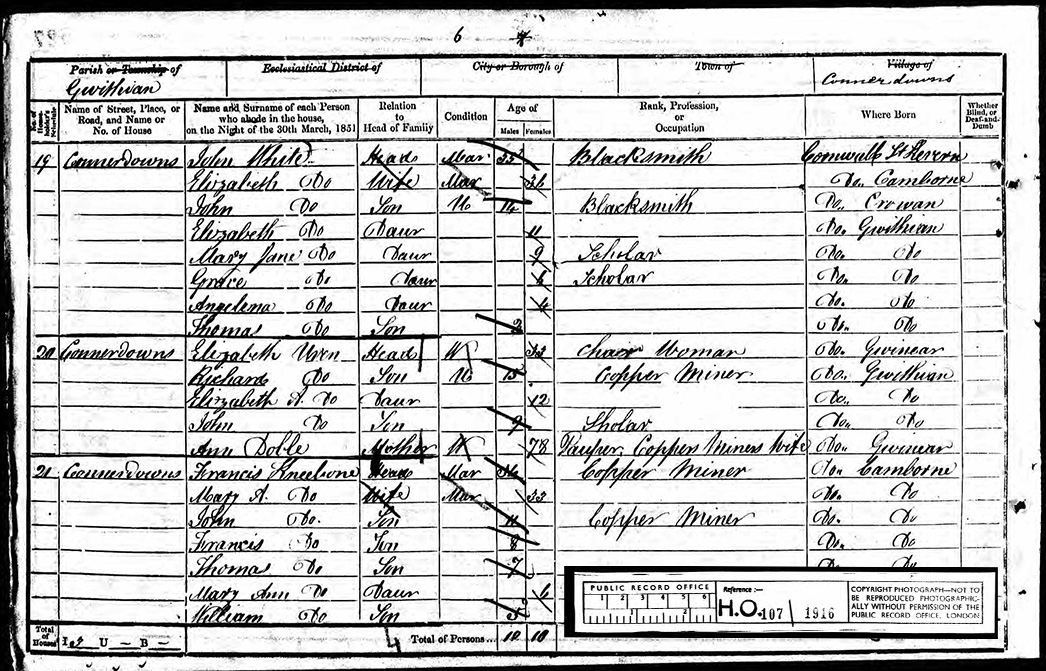 6
Parish or Township of Ecclesiastical District of City or Borough of Town of Village of
Gwithian Connerdowns
Name of Street, Place, or Road, and Name or No. of House Name and Surname of each Person who abode in the house, on the Night of the 30th March, 1851 Relation to Head of Family Condition Age of Males Females Rank, Profession, or Occupation Where Born Whether Blind, or Deaf-and-Dumb
19 Connerdowns John White Head Mar 35 Blacksmith Cornwall St Kevern
Elizabeth Do Wife Mar 36 Do. Camborne
John Do Son U 14 Blacksmith Do. Crowan
Elizabeth Do Daur 11 Do. Gwithian
Mary Jane Do Daur 9 Scholar Do. Do
Grace Do Daur 6 Scholar Do. Do
Angelena Do Daur 4 Do. Do
Thomas Do Son 2 Do. Do
20 Connerdowns Elizabeth Uren Head W 33 Char Woman Do. Gwinear
Richard Do Son U 15 Copper Miner Do. Gwithian
Elizabeth A. Do Daur 12 Do. Do
John Do Son 9 Sholar Do. Do
Ann Doble Mother W 78 Pauper Coppers Miners Wife Do. Gwinear
21 Connerdowns Francis Kneebone Head Mar Copper Miner Do. Camborne
Mary A. Do Wife Mar 33 Do. Do
John Do. Son 11 Copper Miner Do. Do
Francis Do Son 8 Do. Do
Thomas Do Son 7 Do. Do
Mary Ann Do Daur 6
William Do Son 3
Total of Houses U B Total of Persons... 10 10
PUBLIC RECORD OFFICE
1 2 3 4 5 6
1 2
Reference :—
H.O. 107 / 1916
COPYRIGHT PHOTOGRAPH—NOT TO
BE REPRODUCED PHOTOGRAPHIC-
ALLY WITHOUT PERMISSION OF THE
PUBLIC RECORD OFFICE, LONDON